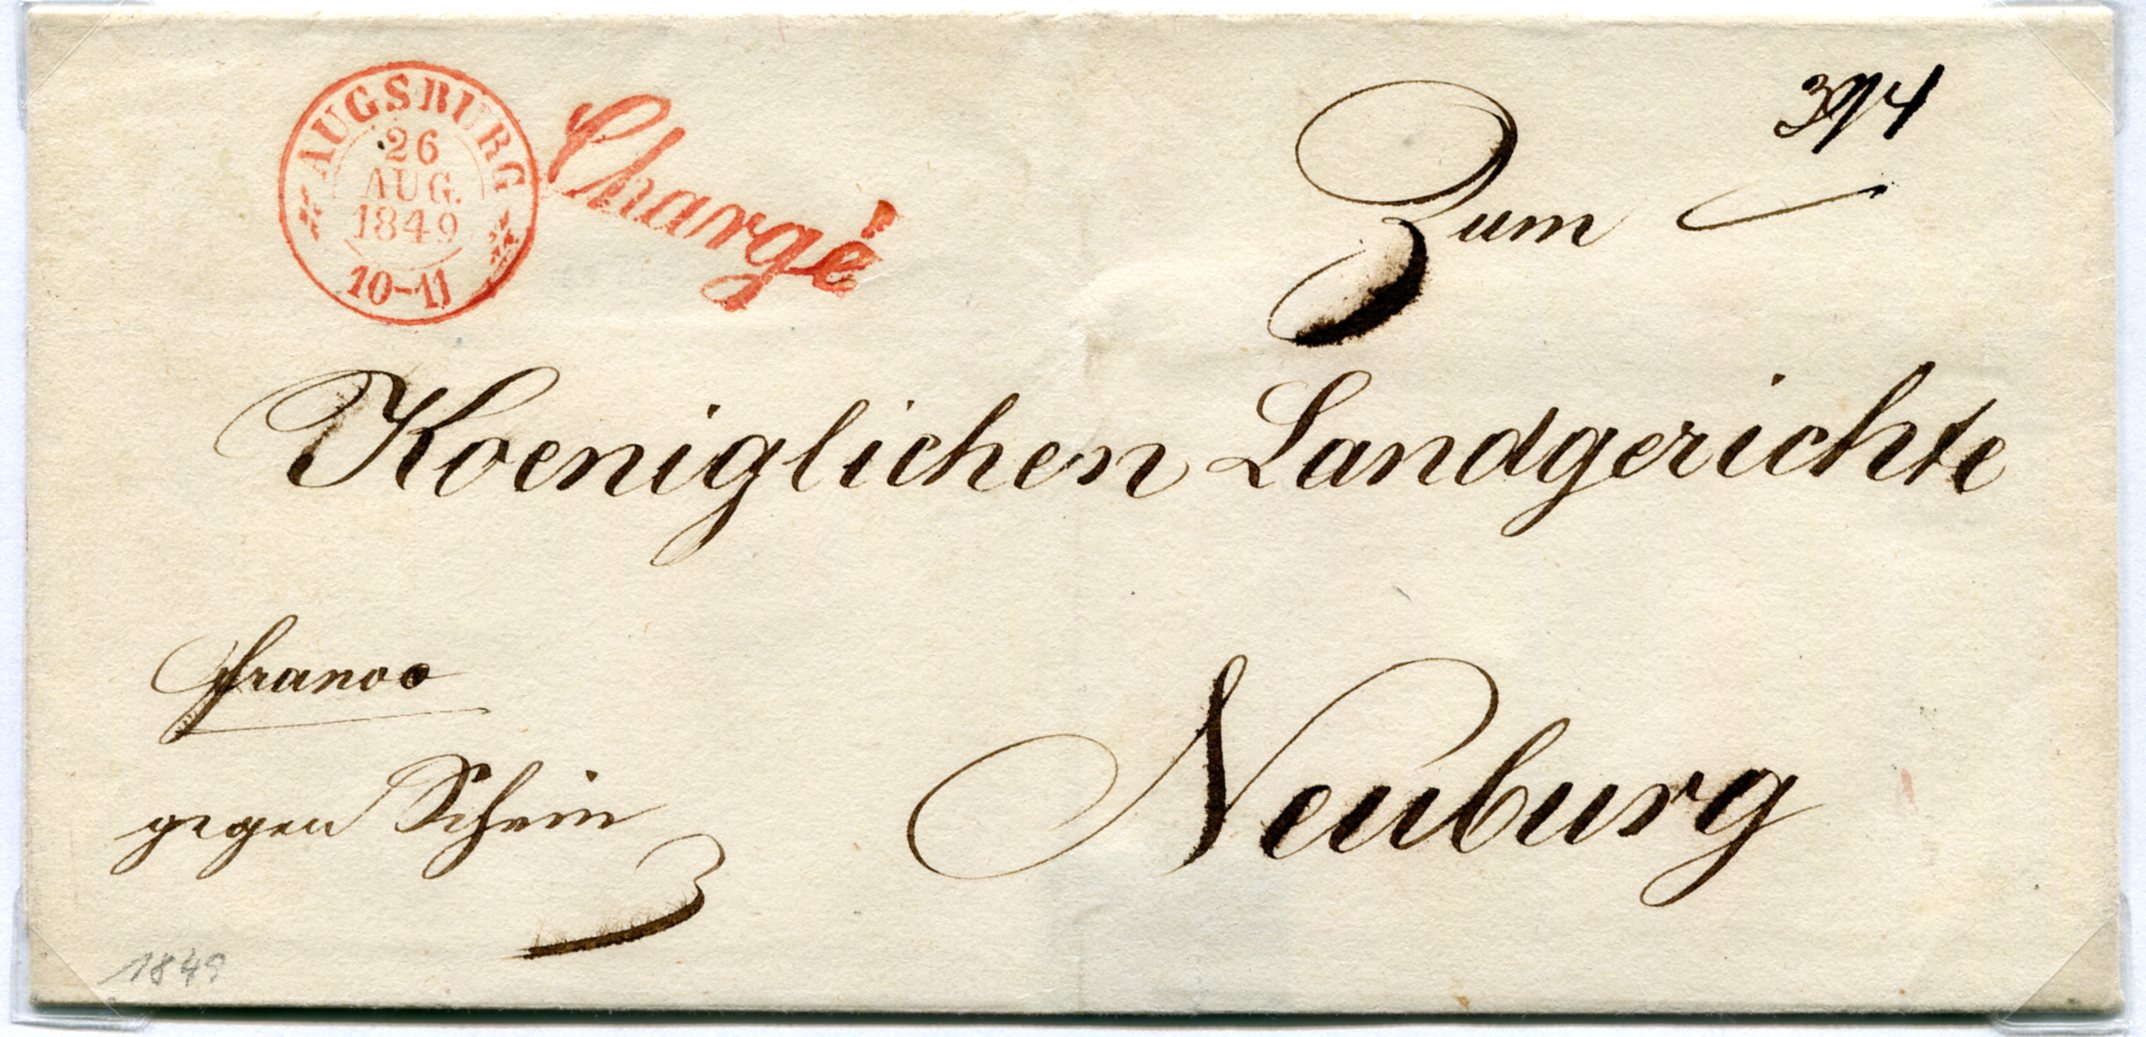 AUGSBURG
26
AUG.
1849
10-11
Chargé
Zum
Koeniglichen Landgerichte
franco
gegen Schein
Neuburg
1849